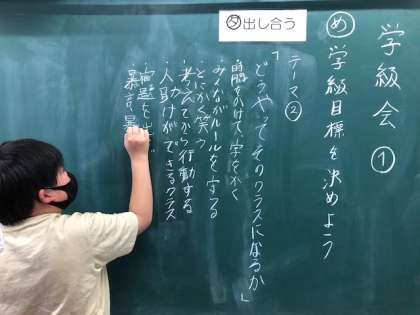 学級会①
め 学級目標を決めよう
ダ 出し合う
テーマ②
「どうやってそのクラスになるか」
時間をかけて、字をかく
・みんながルールを守る
・とにかく笑う
・考えてから行動する
・人助けができるクラス
・宿題を
・暴言、暴